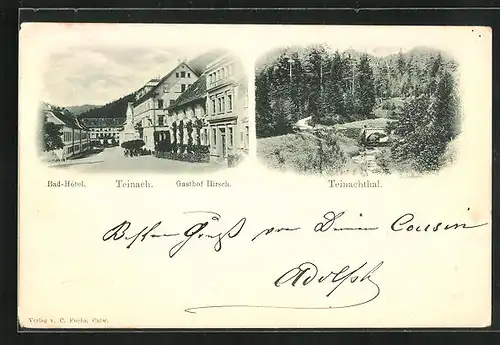 Bad-Hôtel. Teinach. Gasthof Hirsch. Teinachthal.
Besten Gruß von Deinem Cousin
Adolph
Verlag v. C. Fuchs, Calw.